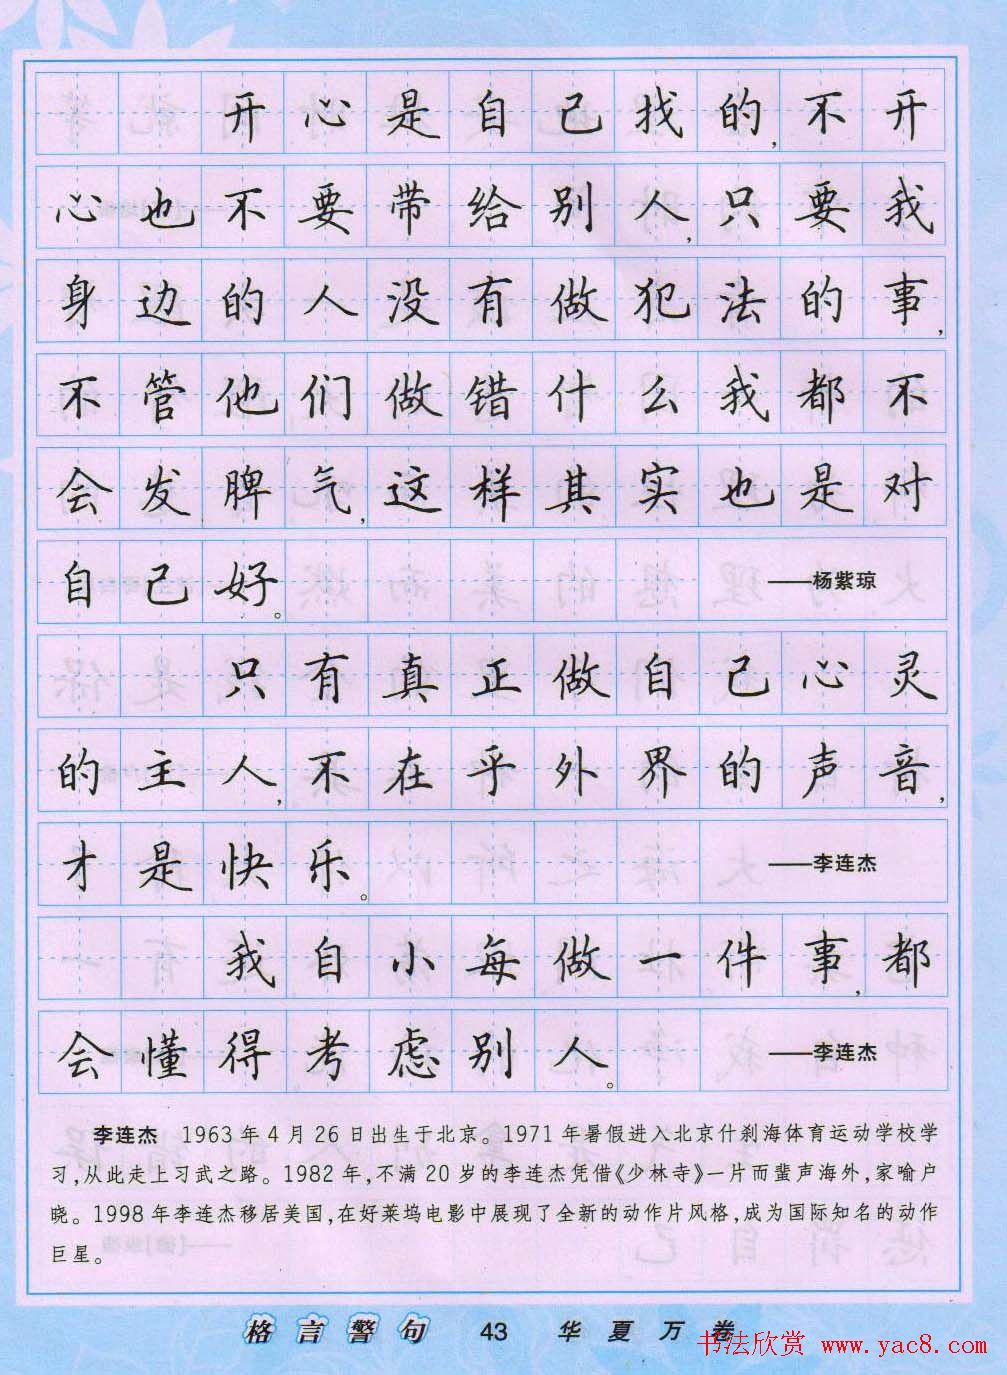 开心是自己找的,不开
心也不要带给别人,只要我
身边的人没有做犯法的事,
不管他们做错什么我都不
会发脾气,这样其实也是对
自己好。 ——杨紫琼
只有真正做自己心灵
的主人,不在乎外界的声音,
才是快乐。 ——李连杰
我自小每做一件事,都
会懂得考虑别人。 ——李连杰
李连杰 1963年4月26日出生于北京。1971年暑假进入北京什刹海体育运动学校学
习,从此走上习武之路。1982年,不满20岁的李连杰凭借《少林寺》一片而蜚声海外,家喻户
晓。1998年李连杰移居美国,在好莱坞电影中展现了全新的动作片风格,成为国际知名的动作
巨星。
格言警句 43 华夏万卷
书法欣赏 www.yac8.com